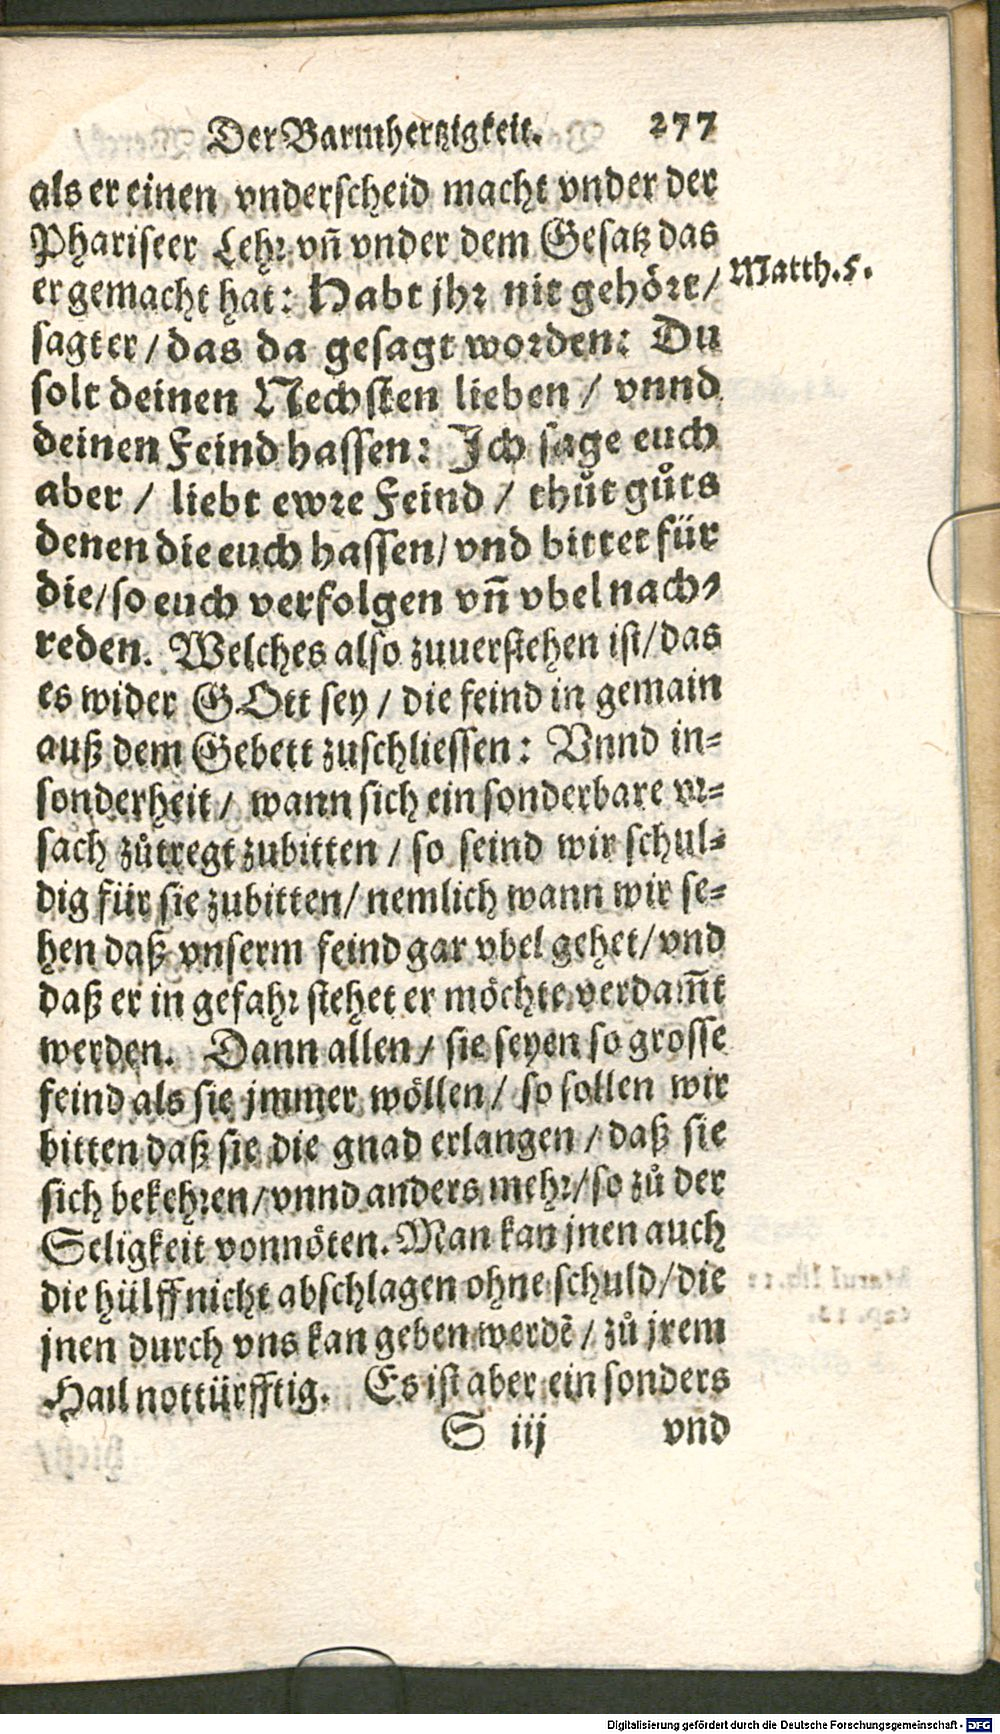 Der Barmhertzigkeit. 277
als er einen vnderscheid macht vnder der
Phariseer Lehr vñ vnder dem Gesatz das
er gemacht hat: Habt jhr nit gehört/
Matth. 5.
sagt er / das da gesagt worden: Du
solt deinen Nechsten lieben / vnnd
deinen Feind hassen: Ich sage euch
aber / liebt ewre Feind / thůt gůts
denen die euch hassen/ vnd bittet für
die/ so euch verfolgen vñ vbel nach-
reden. Welches also zuuerstehen ist/ das
es wider GOtt sey / die feind in gemain
auß dem Gebett zuschliessen: Vnnd in-
sonderheit / wann sich ein sonderbare vr-
sach zůtregt zubitten / so seind wir schul-
dig für sie zubitten/ nemlich wann wir se-
hen daß vnserm feind gar vbel gehet/ vnd
daß er in gefahr stehet er möchte verdam̃t
werden. Dann allen / sie seyen so grosse
feind als sie jmmer wöllen / so sollen wir
bitten daß sie die gnad erlangen / daß sie
sich bekehren / vnnd anders mehr/ so zů der
Seligkeit vonnöten. Man kan jnen auch
die hülff nicht abschlagen ohne schuld/ die
jnen durch vns kan geben werdẽ / zů jrem
Hail nottürfftig. Es ist aber ein sonders
S iij vnd
Digitalisierung gefördert durch die Deutsche Forschungsgemeinschaft - DFG